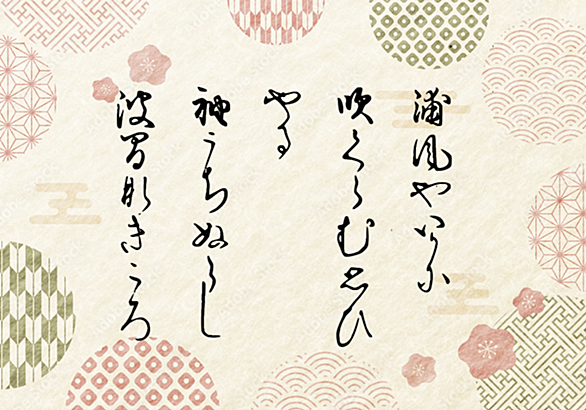 浦風やいかに
吹くらむ思ひ
やる
袖うちぬらし
波間なきころ